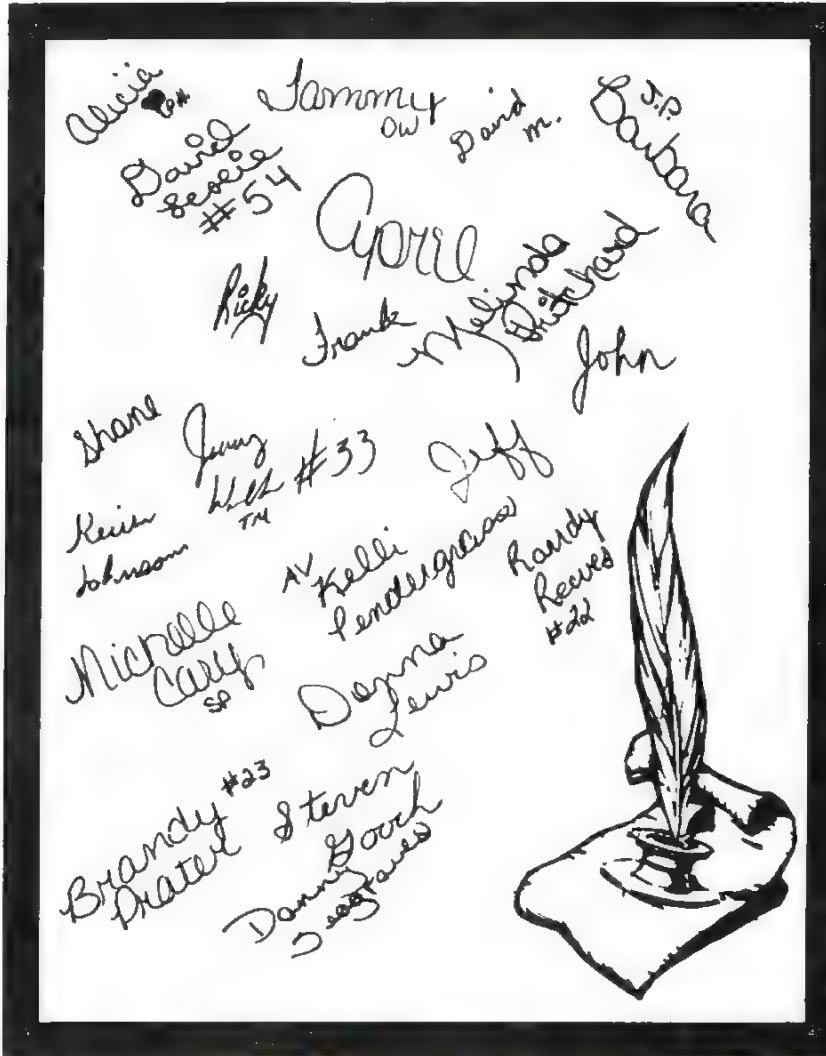 Alicia
Tammy
DW
David
m.
J.P.
Barbara
David
#54
April
Ricky
Frank
Melinda
Pritchard
John
Shane
#33
TM
Jeff
Kevin
Johnson
AV
Kelli
Pendergrass
Randy
Reeves
#22
Michelle
Cary
SP
Donna
Lewis
#23
Brandy
Prater
Steven
Gooch
Danny
Seagraves